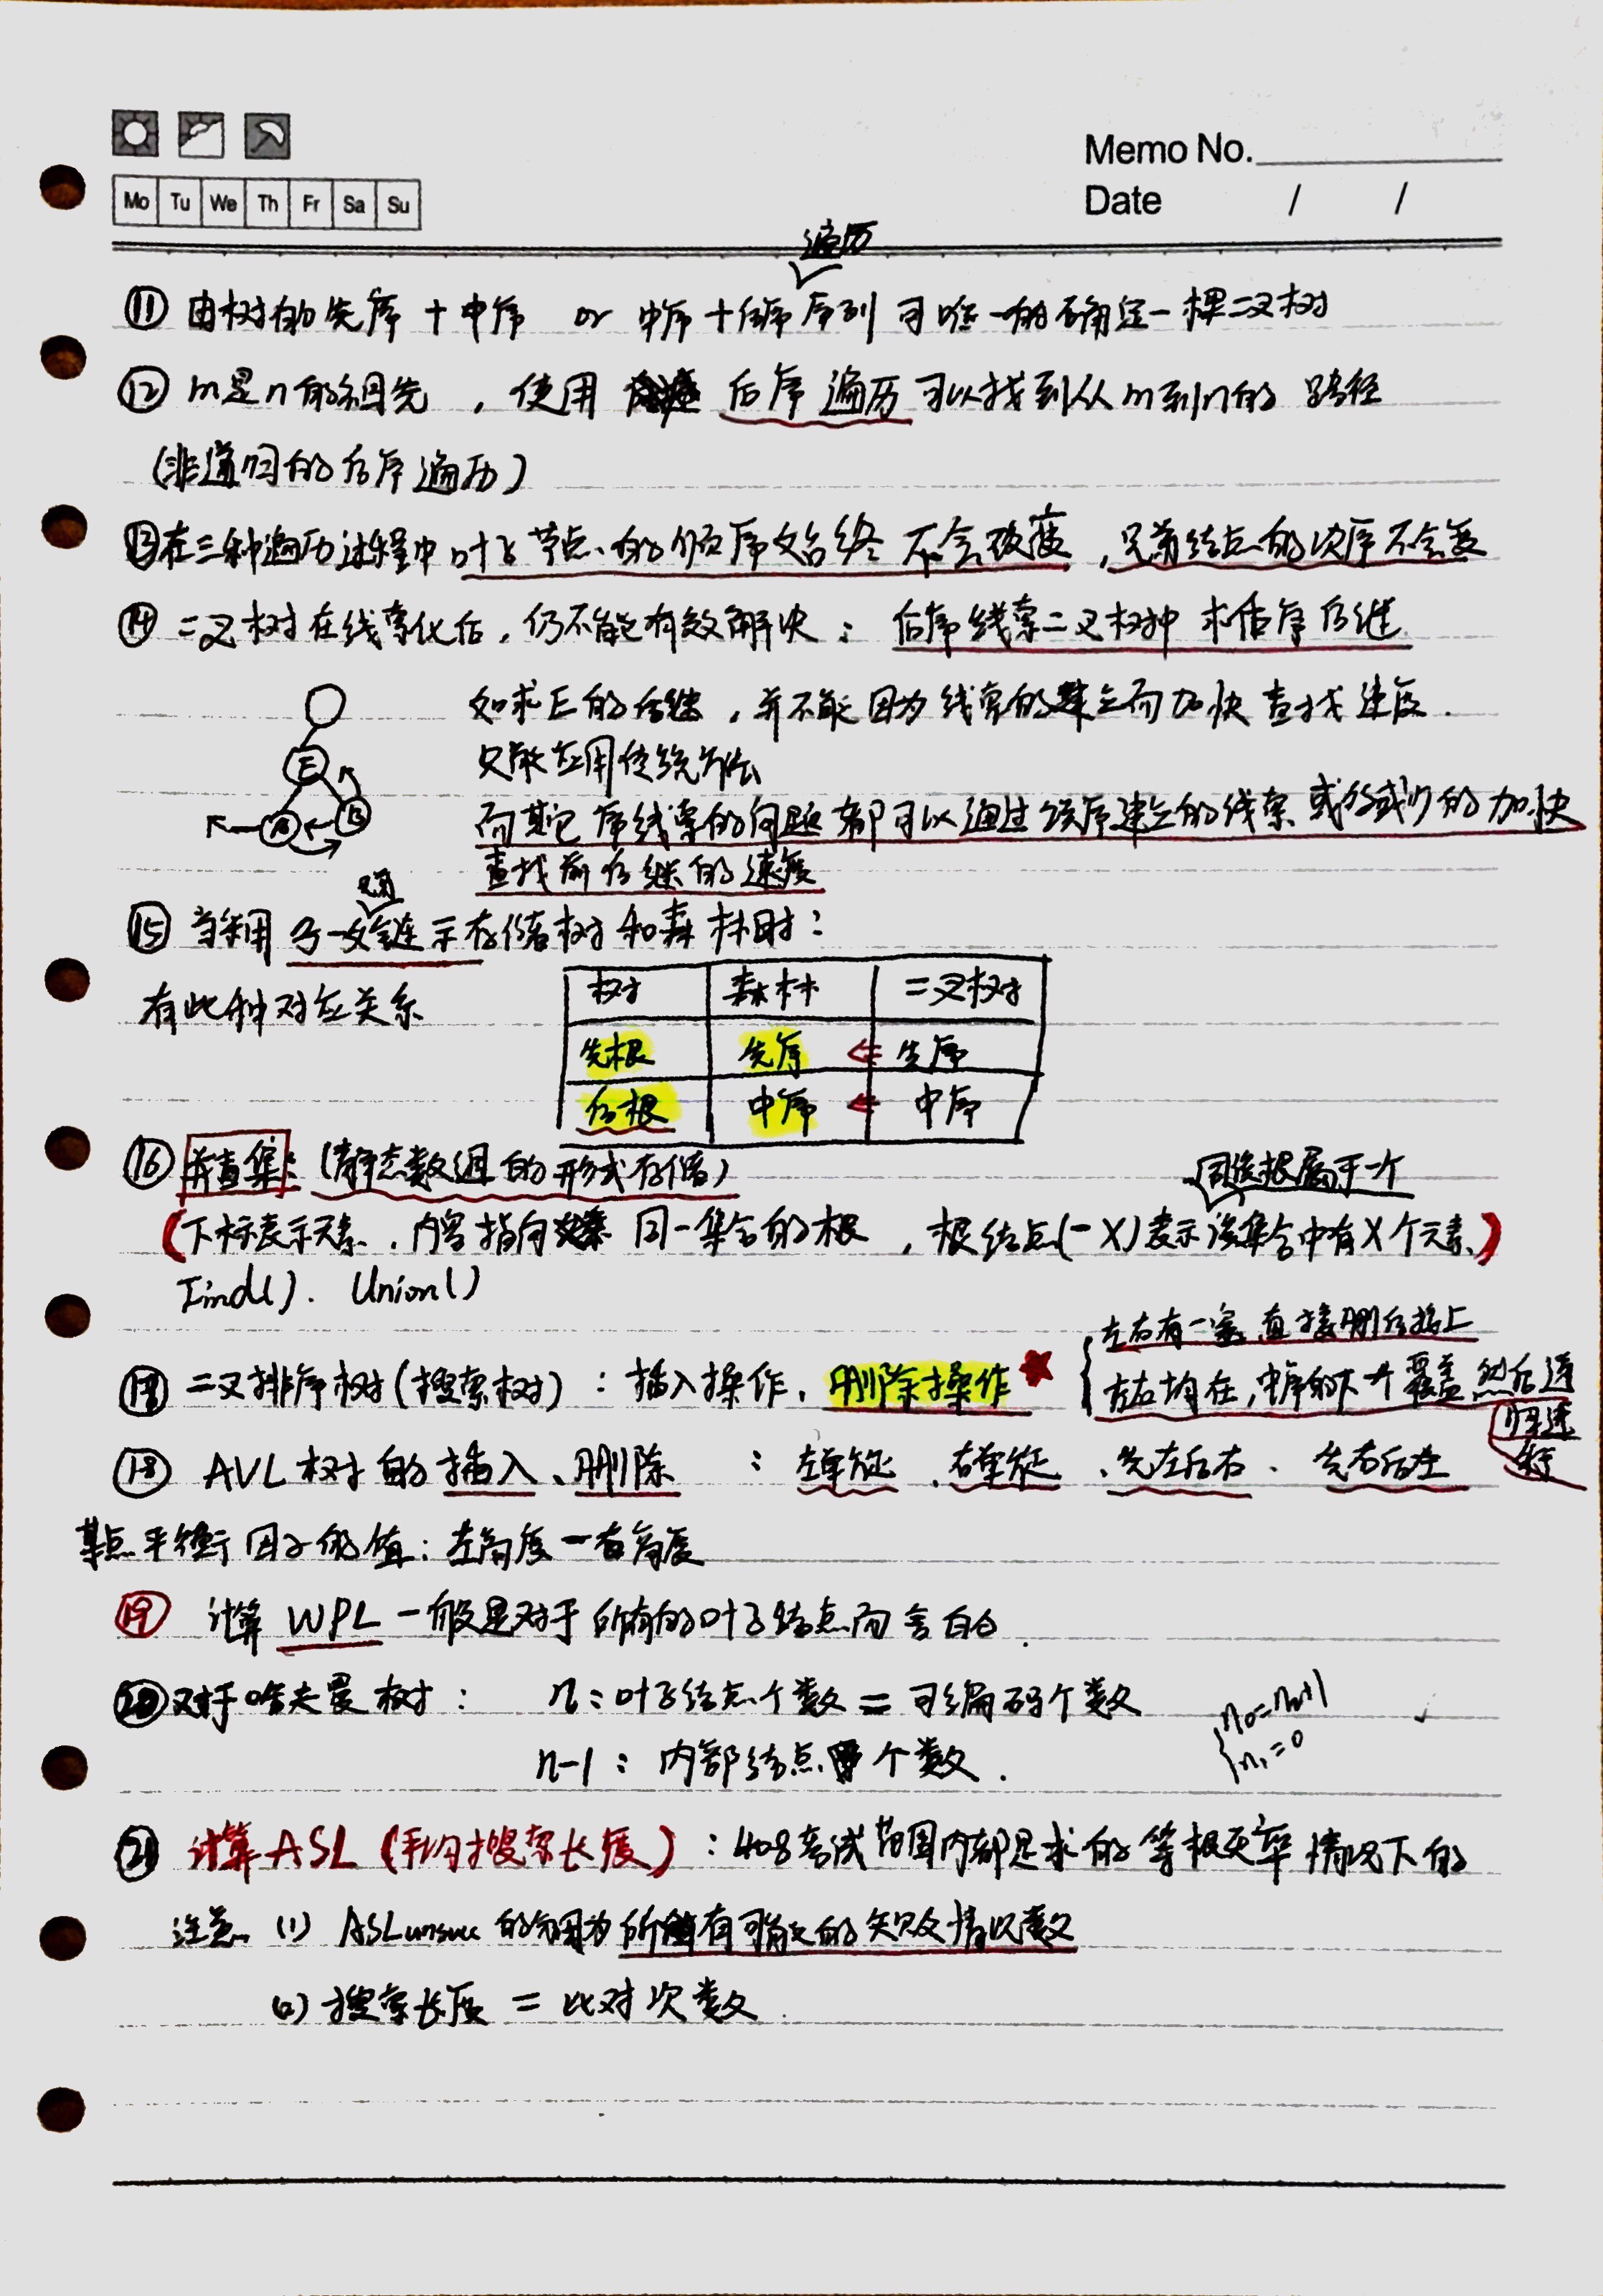 Memo No.
Mo Tu We Th Fr Sa Su
Date / /
遍历
⑪ 由树的先序+中序 or 中序+后序序列 可唯一的确定一棵二叉树
⑫ m是n的祖先,使用 后序遍历 可以找到从m到n的路径
(非递归的后序遍历)
⑬在三种遍历过程中叶子节点的顺序始终不会改变,兄弟结点的次序不会变
⑭ 二叉树在线索化后,仍不能有效解决:后序线索二叉树中求后序后继
如求E的后继,并不能因为线索的建立而加快查找速度.
只能应用传统方法
E
A B
而其它序线索的问题都可以通过该序建立的线索或多或少的加快
查找前后继的速度
兄弟
⑮ 当采用 子女链示存储树和森林时:
有此种对应关系
树 森林 二叉树
先根 先序 ⇐ 先序
后根 中序 ⇐ 中序
⑯ 并查集:(静态数组的形式存储)
同后根属于一个
(下标表示元素,内容指向 同一集合的根,根结点(-X)表示该集合中有X个元素)
Find(). Union()
左右有一空,直接删后接上
⑰ 二叉排序树(搜索树):插入操作,删除操作★
左右均在,中序的下一个覆盖然后递归进行
⑱ AVL树的插入、删除 :左单旋、右单旋、先左后右、先右后左
某点平衡因子的值:左高度-右高度
⑲ 计算WPL一般是对于所有的叶子结点而言的.
⑳对于哈夫曼树: n:叶子结点个数=可编码个数
n₀=n₂+1
n₁=0
n-1:内部结点个数.
㉑ 计算ASL(平均搜索长度):408考试范围内都是求的等概率情况下的
注意 (1) ASLunsucc的分母为所有可能的失败情况数
(2) 搜索长度=比对次数.